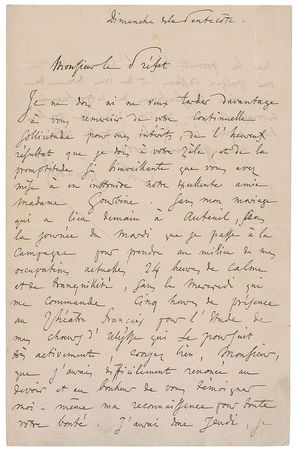 Dimanche de la Pentecôte.
Monsieur le Préfet
Je ne dois ni ne veux tarder davantage
à vous remercier de votre Continuelle
Sollicitude pour mes intérêts, de l'heureux
résultat que je dois à votre Zèle et de la
promptitude Si bienveillante que vous avez
mise à en instruire notre Excellente amie
Madame Gourbine. Sans mon mariage
qui a lieu demain à Auteuil, Sans
la journée du Mardi que je passe à la
Campagne pour prendre au milieu de mes
occupations actuelles 24 heures de Calme
et de tranquillité, Sans le Mercredi que
me commande Cinq heures de présence
au Théâtre français pour l'Etude de
mes chœurs d'Ulysse qui Se poursuit
très activement, croyez bien, Monsieur,
que j'aurais difficilement renoncé au
devoir et au bonheur de vous témoigner
moi-même ma reconnaissance pour toute
votre bonté. J'aurai donc Jeudi, je